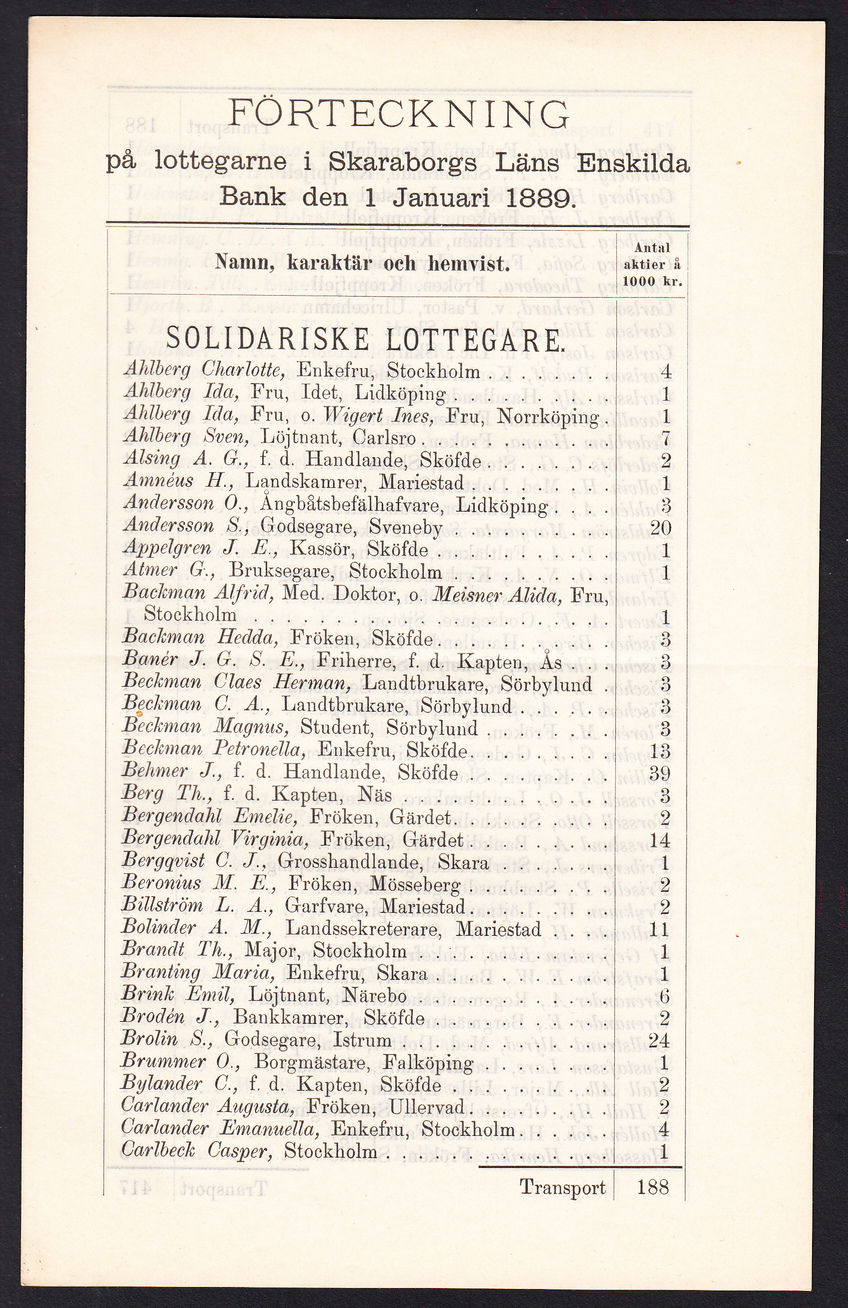 FÖRTECKNING
på lottegarne i Skaraborgs Läns Enskilda
Bank den 1 Januari 1889.
Namn, karaktär och hemvist.
Antal
aktier å
1000 kr.
SOLIDARISKE LOTTEGARE.
Ahlberg Charlotte, Enkefru, Stockholm . . . . . . . 4
Ahlberg Ida, Fru, Idet, Lidköping . . . . . . . . 1
Ahlberg Ida, Fru, o. Wigert Ines, Fru, Norrköping . 1
Ahlberg Sven, Löjtnant, Carlsro . . . . . . . . . . 7
Alsing A. G., f. d. Handlande, Sköfde . . . . . . 2
Amnéus H., Landskamrer, Mariestad . . . . . . . 1
Andersson O., Ångbåtsbefälhafvare, Lidköping . . . 3
Andersson S., Godsegare, Sveneby . . . . . . . . 20
Appelgren J. E., Kassör, Sköfde . . . . . . . . . 1
Atmer G., Bruksegare, Stockholm . . . . . . . . 1
Backman Alfrid, Med. Doktor, o. Meisner Alida, Fru,
Stockholm . . . . . . . . . . . . . . . . 1
Backman Hedda, Fröken, Sköfde . . . . . . . . . 3
Banér J. G. S. E., Friherre, f. d. Kapten, Ås . . . 3
Beckman Claes Herman, Landtbrukare, Sörbylund . 3
Beckman C. A., Landtbrukare, Sörbylund . . . . . 3
Beckman Magnus, Student, Sörbylund . . . . . . 3
Beckman Petronella, Enkefru, Sköfde . . . . . . . 13
Behmer J., f. d. Handlande, Sköfde . . . . . . . 39
Berg Th., f. d. Kapten, Näs . . . . . . . . . . 3
Bergendahl Emelie, Fröken, Gärdet . . . . . . . . 2
Bergendahl Virginia, Fröken, Gärdet . . . . . . . 14
Bergqvist C. J., Grosshandlande, Skara . . . . . . 1
Beronius M. E., Fröken, Mösseberg . . . . . . . 2
Billström L. A., Garfvare, Mariestad . . . . . . . 2
Bolinder A. M., Landssekreterare, Mariestad . . . 11
Brandt Th., Major, Stockholm . . . . . . . . . . 1
Branting Maria, Enkefru, Skara . . . . . . . . . 1
Brink Emil, Löjtnant, Närebo . . . . . . . . . . 6
Brodén J., Bankkamrer, Sköfde . . . . . . . . . 2
Brolin S., Godsegare, Istrum . . . . . . . . . . 24
Brummer O., Borgmästare, Falköping . . . . . . 1
Bylander C., f. d. Kapten, Sköfde . . . . . . . . 2
Carlander Augusta, Fröken, Ullervad . . . . . . . 2
Carlander Emanuella, Enkefru, Stockholm . . . . . 4
Carlbeck Casper, Stockholm . . . . . . . . . . . 1
Transport 188